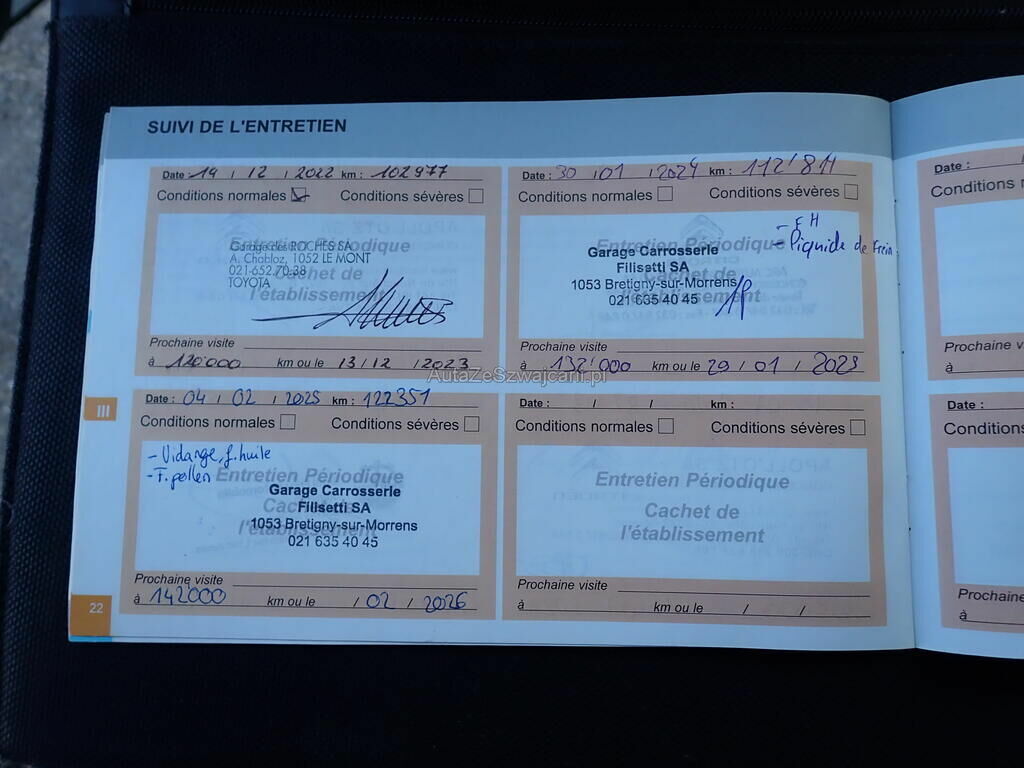 SUIVI DE L'ENTRETIEN
Date : 14 / 12 / 2022 km : 102977
Conditions normales Conditions sévères
Entretien Périodique
Cachet de
l'établissement
Garage des ROCHES SA
A. Chabloz, 1052 LE MONT
021-652.70.38
TOYOTA
Prochaine visite
à 120'000 km ou le 13 / 12 / 2023
Date : 30 / 01 / 2024 km : 112'811
Conditions normales Conditions sévères
- FH
- liquide de frein
Entretien Périodique
Cachet de
l'établissement
Garage Carrosserie
Filisetti SA
1053 Bretigny-sur-Morrens
021 635 40 45
Prochaine visite
à 132'000 km ou le 29 / 01 / 2025
AutaZeSzwajcarii.pl
Date : 04 / 02 / 2025 km : 122351
Conditions normales Conditions sévères
- Vidange, f. huile
- F. pollen
Entretien Périodique
Cachet de
l'établissement
Garage Carrosserie
Filisetti SA
1053 Bretigny-sur-Morrens
021 635 40 45
Prochaine visite
à 142000 km ou le / 02 / 2026
Date : / / km :
Conditions normales Conditions sévères
Entretien Périodique
Cachet de
l'établissement
Prochaine visite
à km ou le / /
III
22
Date :
Conditions
Prochaine
à
Date :
Conditions
Prochaine
à